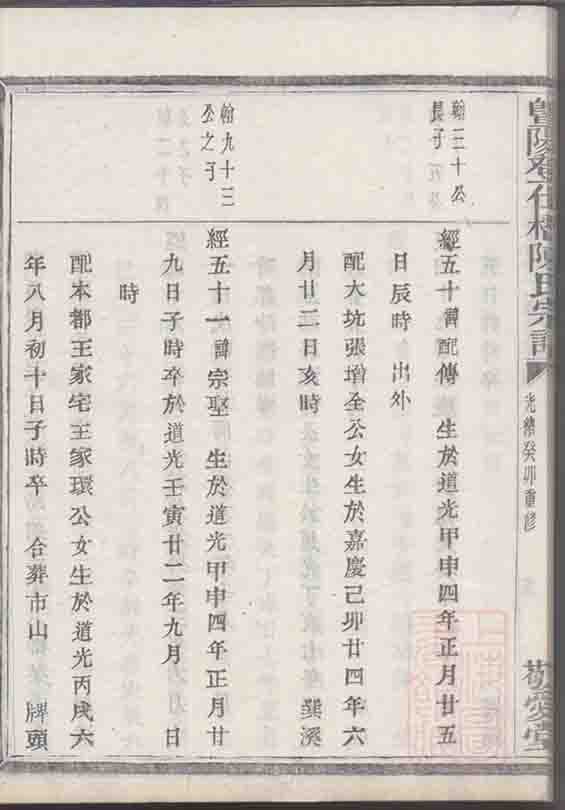 暨陽孝仕橋陳氏宗譜
光緒癸卯重修
敬愛堂
翰三十公
長子
經五十
諱配傳
生於道光甲申四年正月廿五
日辰時 出外
配大坑張增全公女生於嘉慶己卯廿四年六
月廿二日亥時 巽溪
翰九十三
公之子
經五十一
諱宗堅
生於道光甲申四年正月廿
九日子時卒於道光壬寅廿二年九月 日
時
配本都王家宅王家環公女生於道光丙戌六
年八月初十日子時卒 合葬市山 牌頭